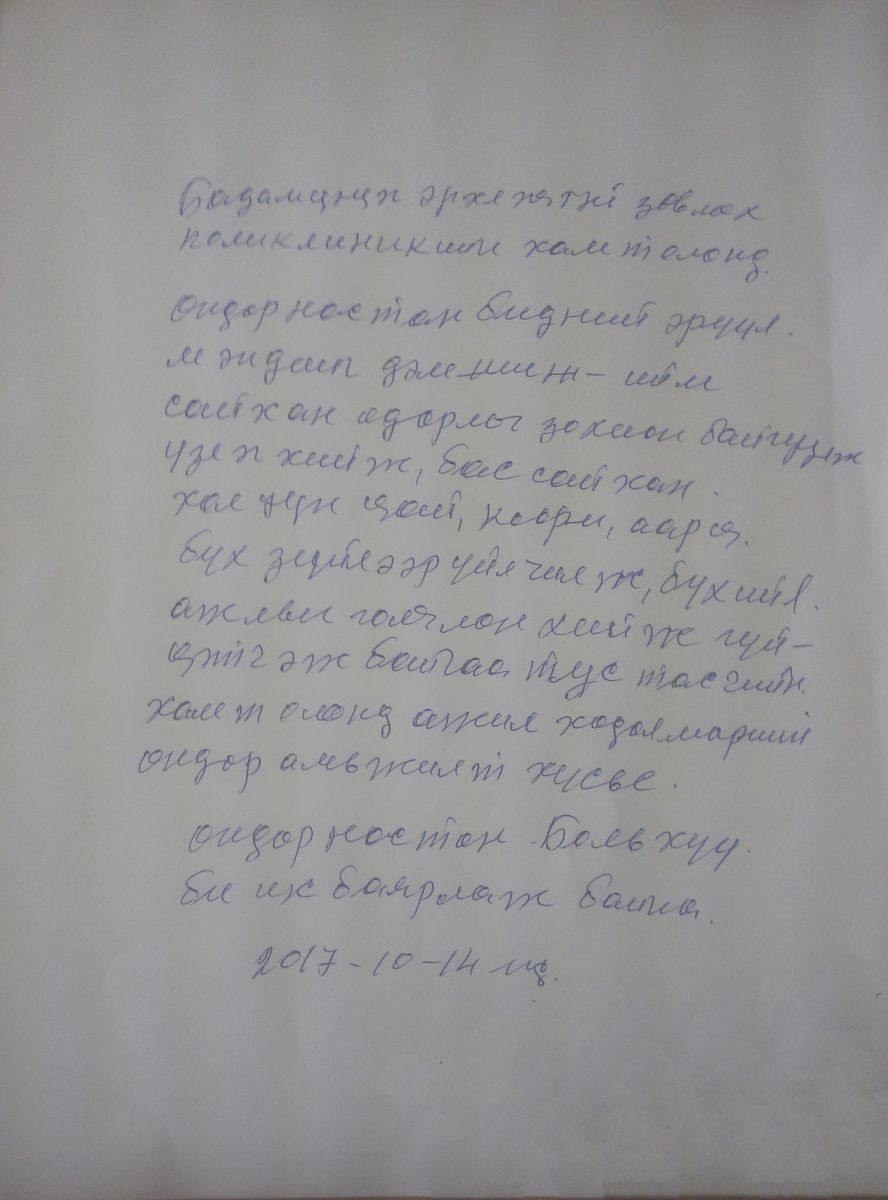 Бадамцэцэн эрхлэхтэй зөвлөх
поликлиникийн хамт олонд.
өндөр настан бидний эрүүл.
мэндийг дэмжиж – ийм
сайхан өдөрлөг зохион байгуулж
үзлэг хийж, бас сайхан.
халуун цай, хоол, аарц.
бүх зүйлээр үйлчилж, бүх үйл.
ажлыг голлон хийж гүй–
цэтгэж байгаа тус тасгийн.
хамт олонд ажил хөдөлмөрийн
өндөр амьжилт хүсье.
өндөр настан
би их баярлаж байна.
2017-10-14 нд.